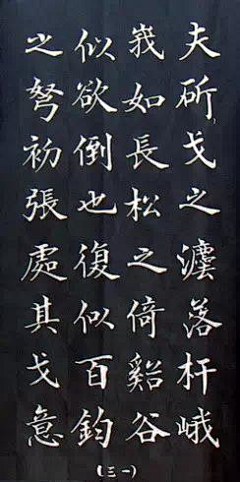 夫斫戈之灋落杆峨
峩如長松之倚谿谷
似欲倒也復似百鈞
之弩初張處其戈意
(三一)